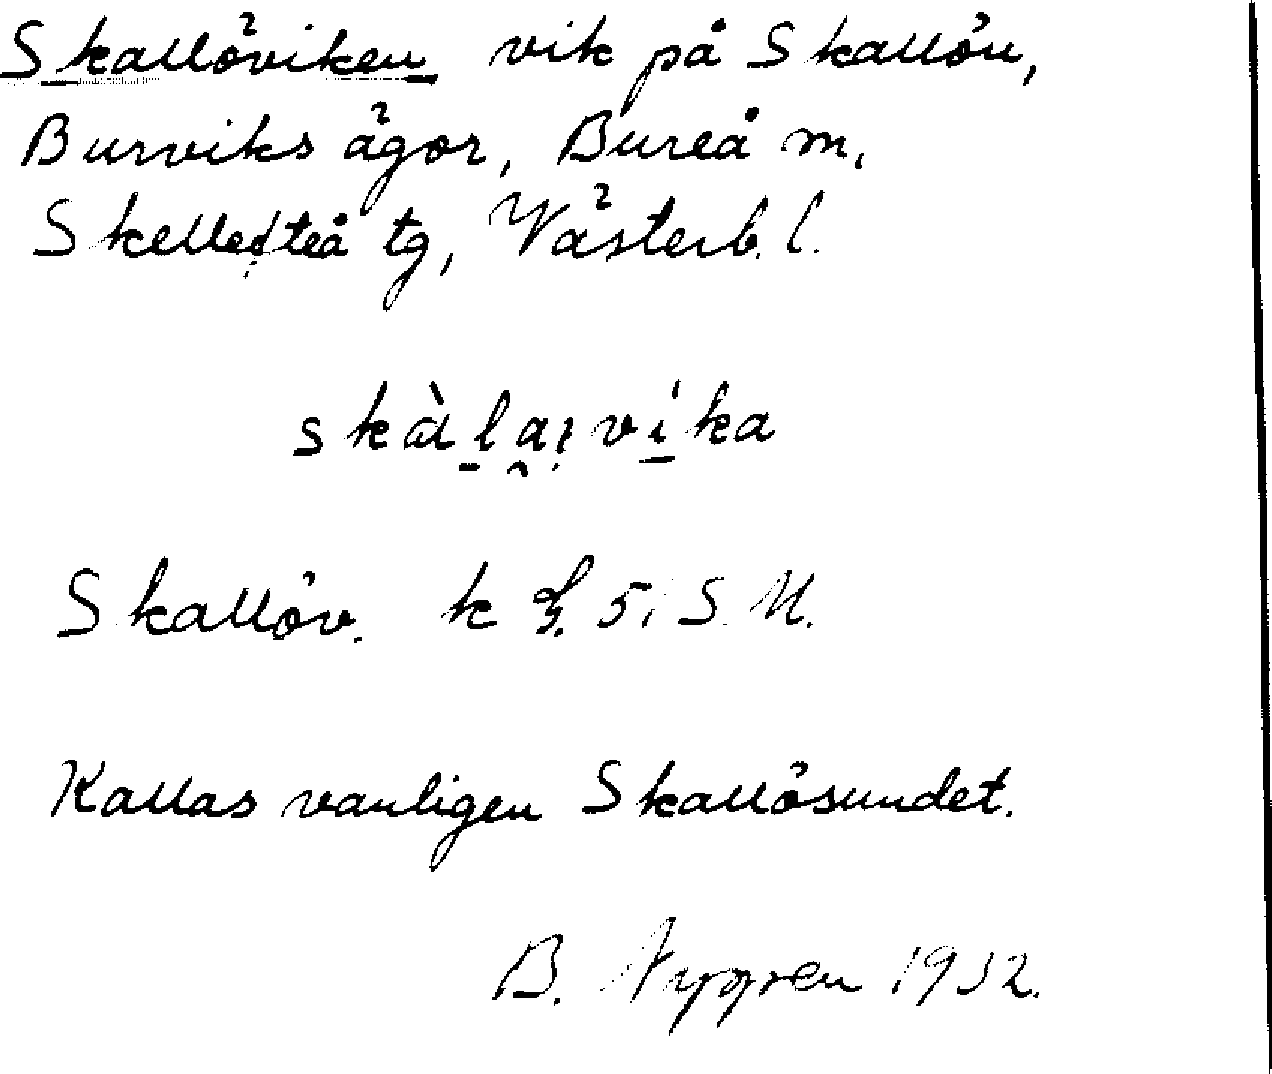 Skallöviken vik på Skallön,
Burviks ägor, Bureå m,
Skellefteå tg, Västerb. l.
skàlaıvíka
Skallöv. k 5, S. N.
Kallas vanligen Skallösundet.
B. Nygren 1932.